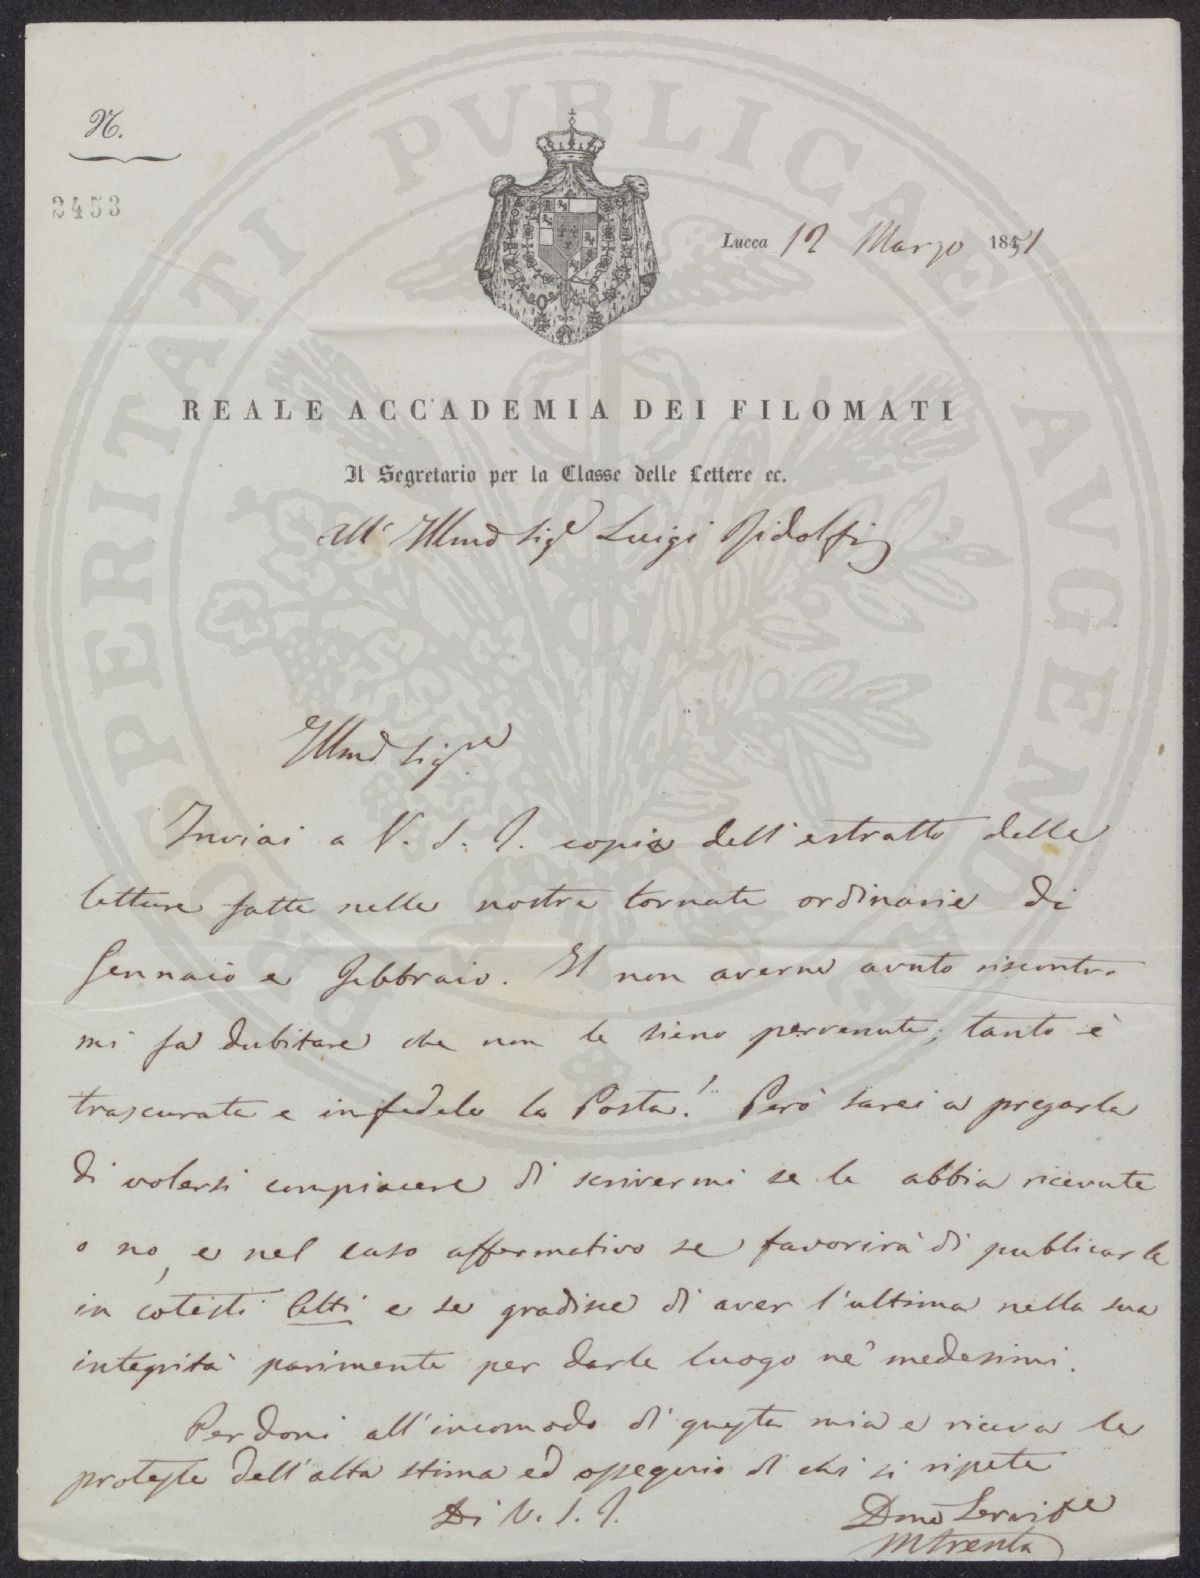 N.
2453
Lucca 12 Marzo 1851
REALE ACCADEMIA DEI FILOMATI
Il Segretario per la Classe delle Lettere ec.
All' Illmo Sigre Luigi Ridolfi
Illmo Sigre
Inviai a V. S. I. copia dell'estratto delle
letture fatte nelle nostre tornate ordinarie di
Gennaio e Febbraio. Il non averne avuto riscontro
mi fa dubitare che non le sieno pervenute; tanto è
trascurata e infedele la Posta! Però sarei a pregarla
di volersi compiacere di scrivermi se le abbia ricevute
o no, e nel caso affermativo se favorirà di publicarle
in cotesti Atti e se gradisce di aver l'ultima nella sua
integrità parimente per darle luogo ne' medesimi.
Perdoni all'incomodo di questa mia e riceva le
proteste dell'alta stima ed ossequio di chi si ripete
Di V. S. I.
Dmo Servitre
M Trenta
PROSPERITATI PVBLICAE AVGENDAE